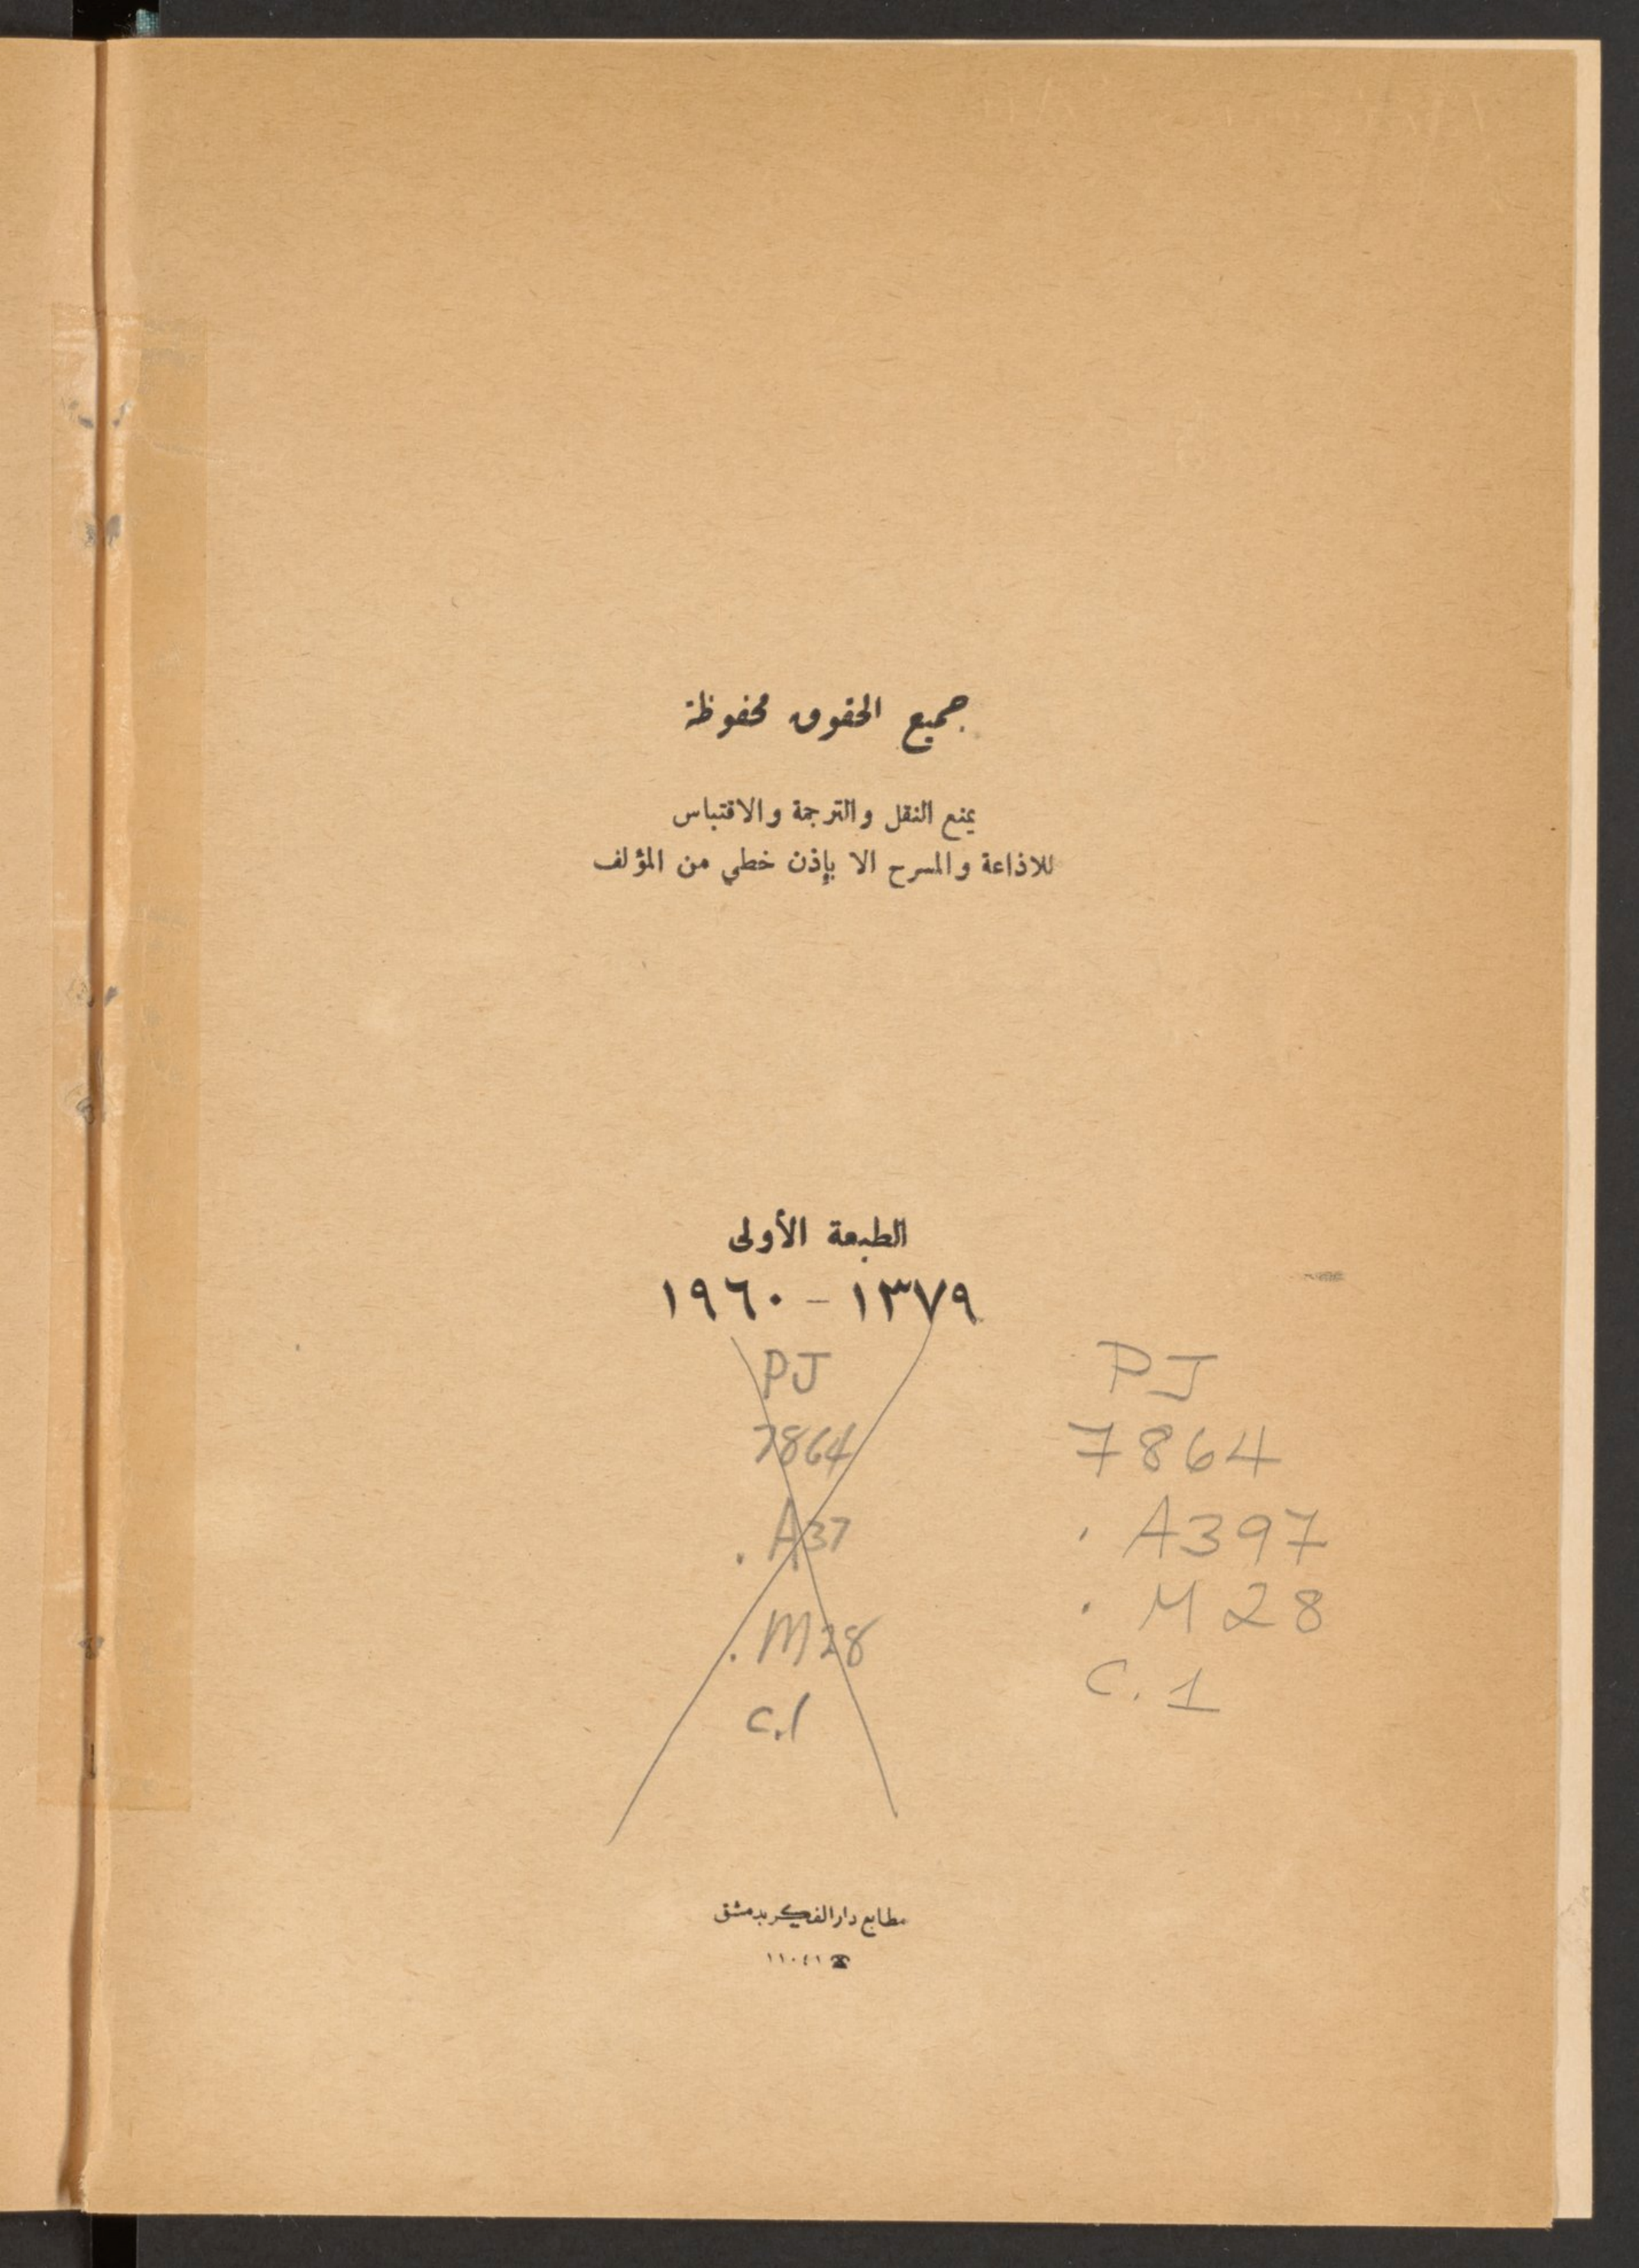 جميع الحقوق محفوظة
يمنع النقل والترجمة والاقتباس
للاذاعة والمسرح الا بإذن خطي من المؤلف
الطبعة الأولى
١٣٧٩ - ١٩٦٠
PJ
7864
. A37
. M28
c.1
PJ
7864
. A397
. M28
C. 1
مطابع دار الفكر بدمشق
☎ ١١٠٤١